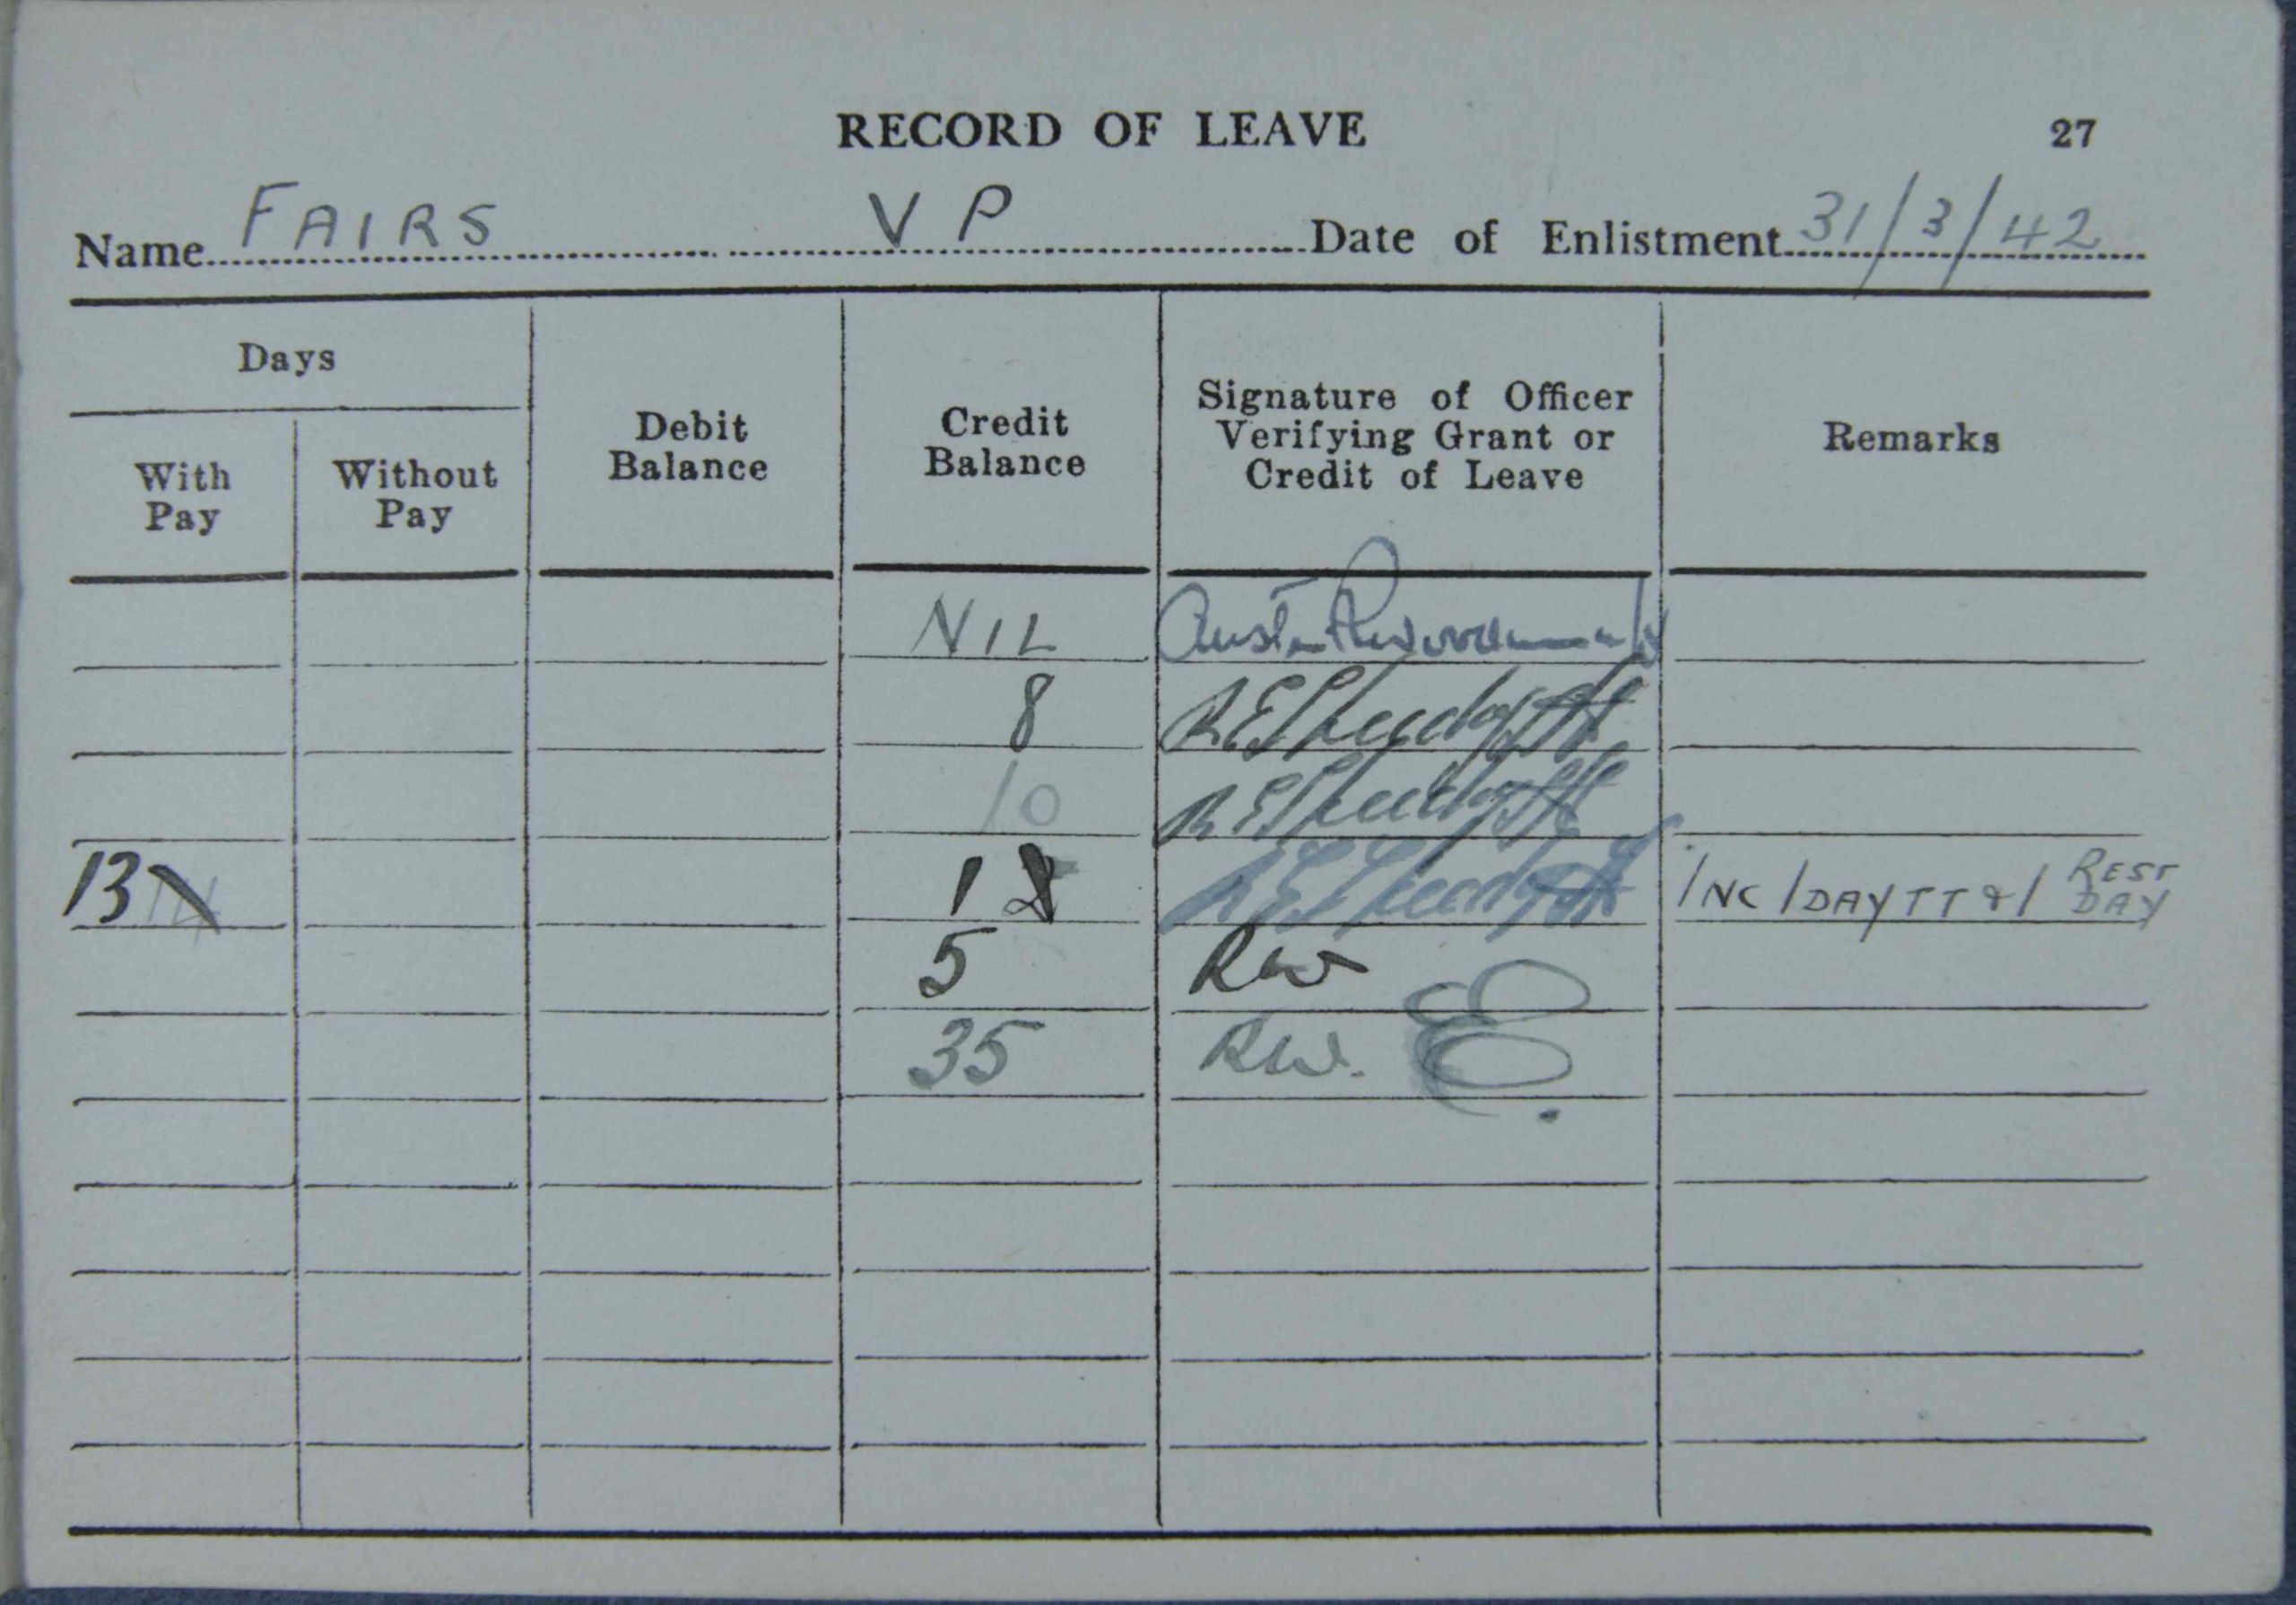 RECORD OF LEAVE 27
Name FAIRS V P Date of Enlistment 31/3/42
Days
With Pay
Without Pay
Debit Balance
Credit Balance
Signature of Officer
Verifying Grant or
Credit of Leave
Remarks
NIL
8
10
13 14 1 INC 1 DAY TT & 1 REST DAY
5 RW
35 RW. E.